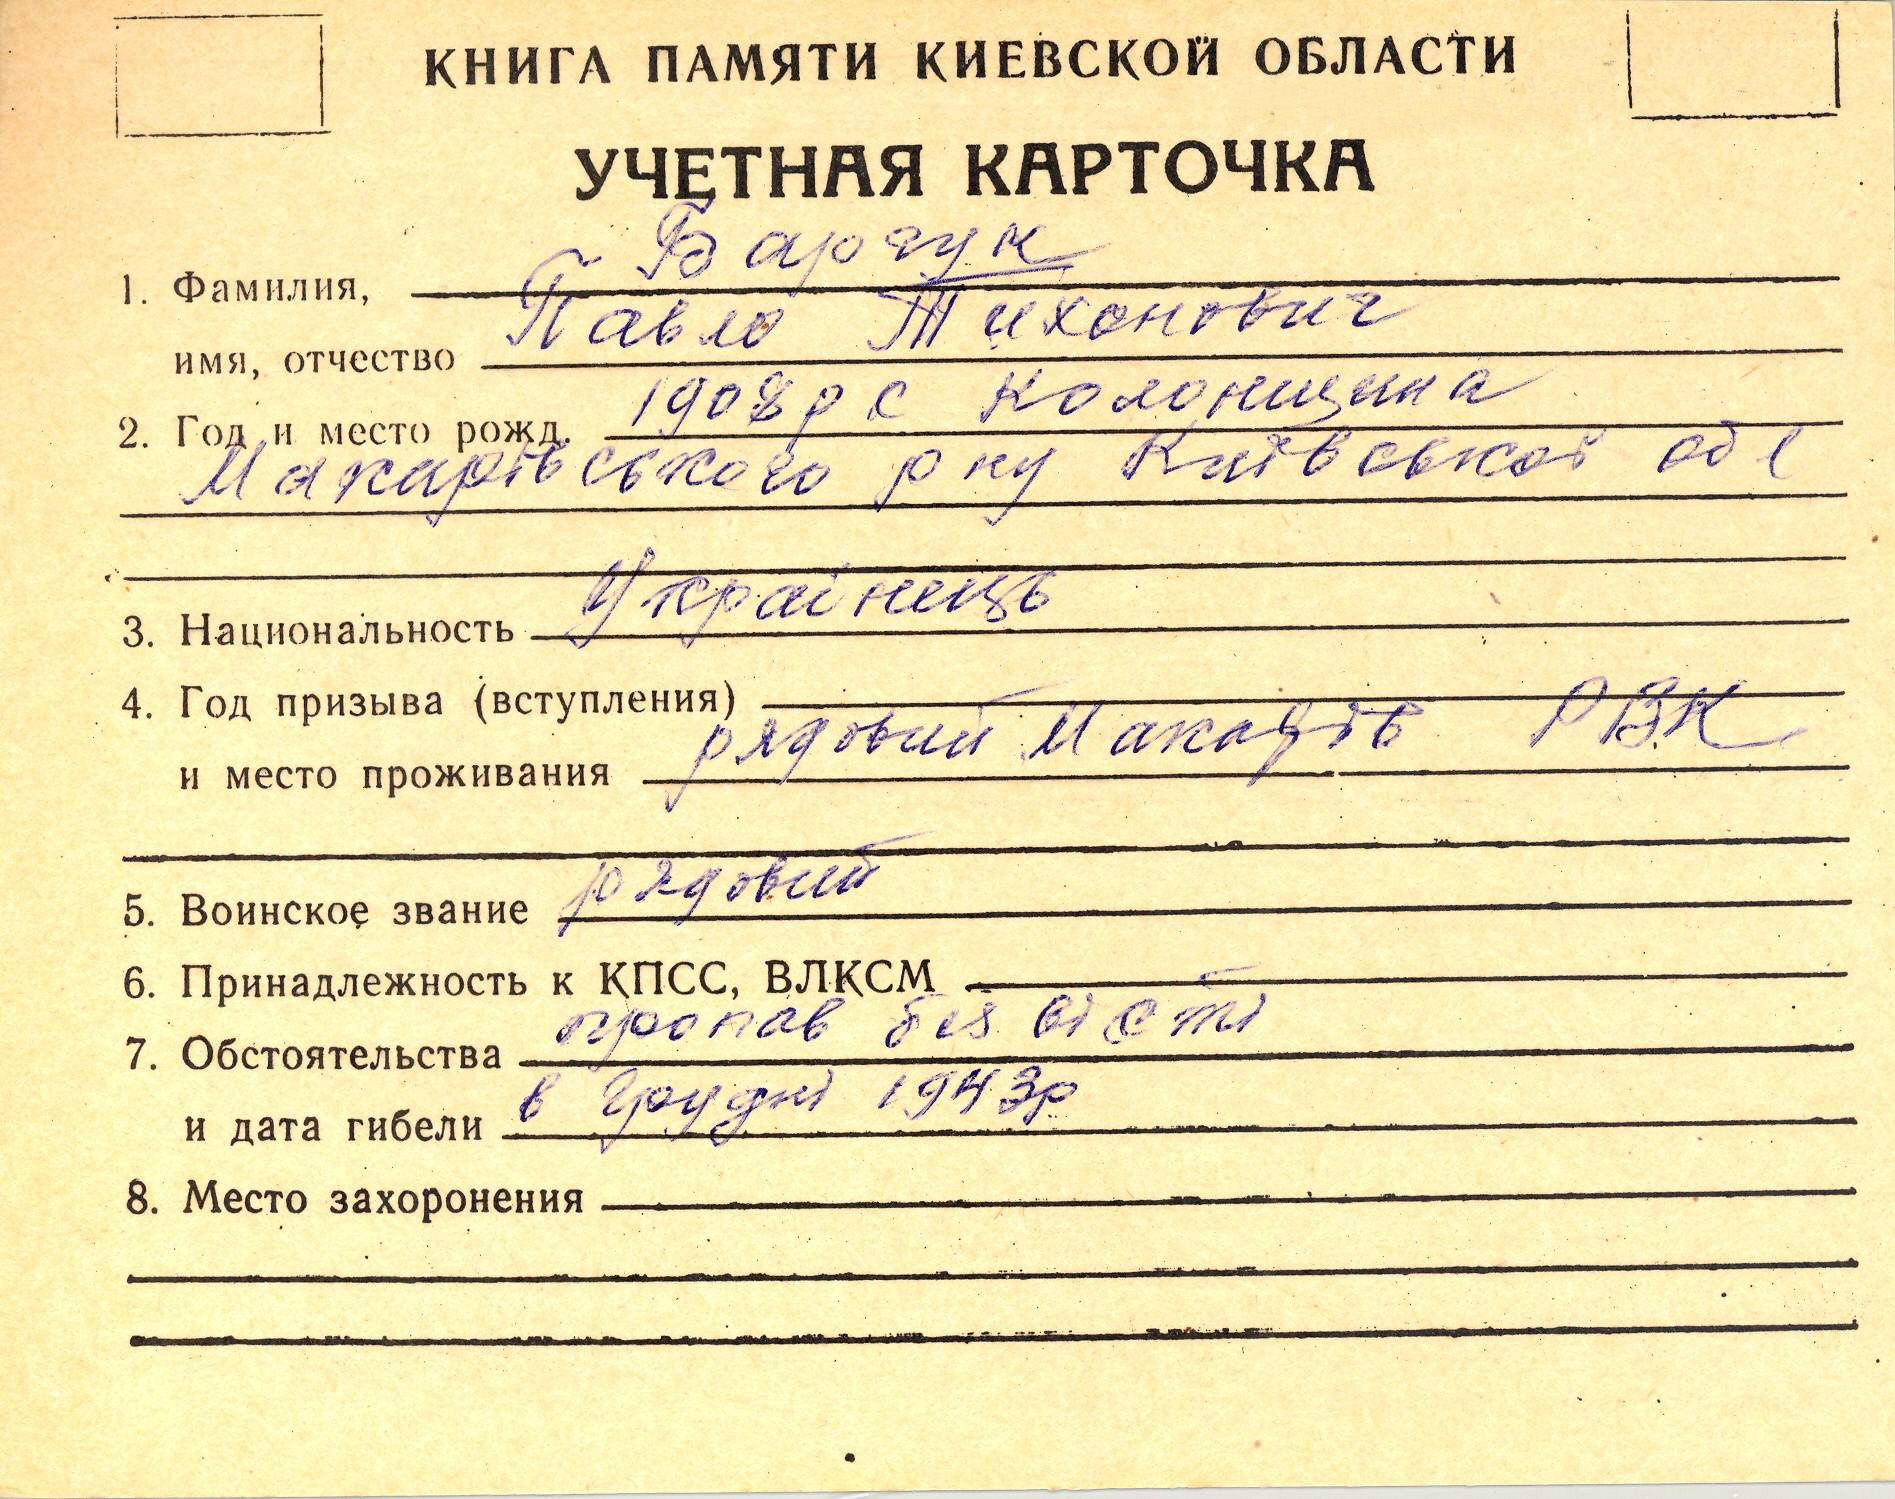 КНИГА ПАМЯТИ КИЕВСКОЙ ОБЛАСТИ
УЧЕТНАЯ КАРТОЧКА
1. Фамилия, Барчук
имя, отчество Павло Тихонович
2. Год и место рожд. 1908 р с Колонщина
Макарівського р ну Київської обл
3. Национальность Українець
4. Год призыва (вступления)
и место проживания рядовий Макарів РВК
5. Воинское звание рядовий
6. Принадлежность к КПСС, ВЛКСМ
7. Обстоятельства пропав без вісті
и дата гибели в грудні 1943р
8. Место захоронения